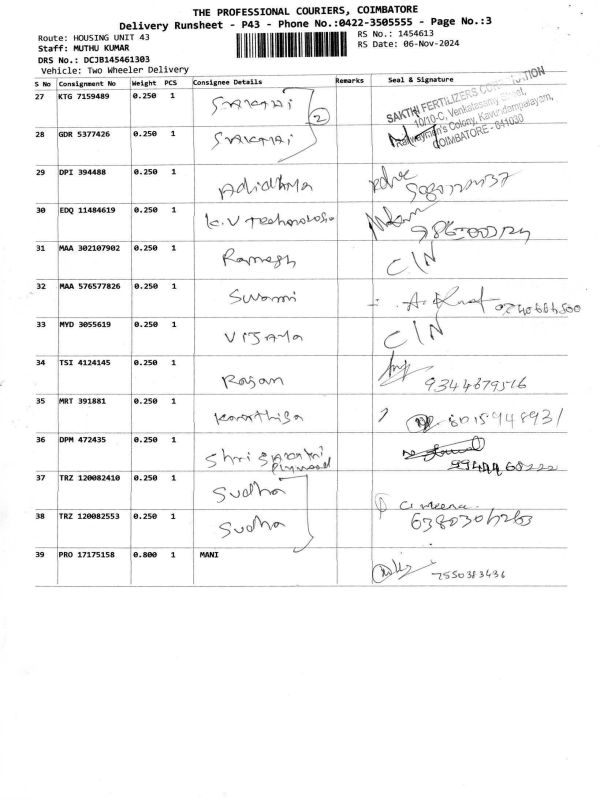 THE PROFESSIONAL COURIERS, COIMBATORE
Delivery Runsheet - P43 - Phone No.:0422-3505555 - Page No.:3
Route: HOUSING UNIT 43 RS No.: 1454613
Staff: MUTHU KUMAR RS Date: 06-Nov-2024
DRS No.: DCJB145461303
Vehicle: Two Wheeler Delivery
S No Consignment No Weight PCS Consignee Details Remarks Seal & Signature
27 KTG 7159489 0.250 1 SAKTHI
2
SAKTHI FERTILIZERS CORPORATION
10/10-C, Venkatasamy Street,
Railwaymen's Colony, Kavundampalayam,
COIMBATORE - 641030
28 GDR 5377426 0.250 1 SAKTHI
29 DPI 394488 0.250 1 Adidhya
30 EDQ 11484619 0.250 1 K.V Technologis
31 MAA 302107902 0.250 1 Ramesh C/N
32 MAA 576577826 0.250 1 Swami
33 MYD 3055619 0.250 1 VIJAYA C/N
34 TSI 4124145 0.250 1 Rajan 9344679516
35 MRT 391881 0.250 1 Karthiga 8015948931
36 DPM 472435 0.250 1 Shri Sakthi
Plywood
9944468222
37 TRZ 120082410 0.250 1 Sudha
38 TRZ 120082553 0.250 1 Sudha
39 PRO 17175158 0.800 1 MANI 7550383436